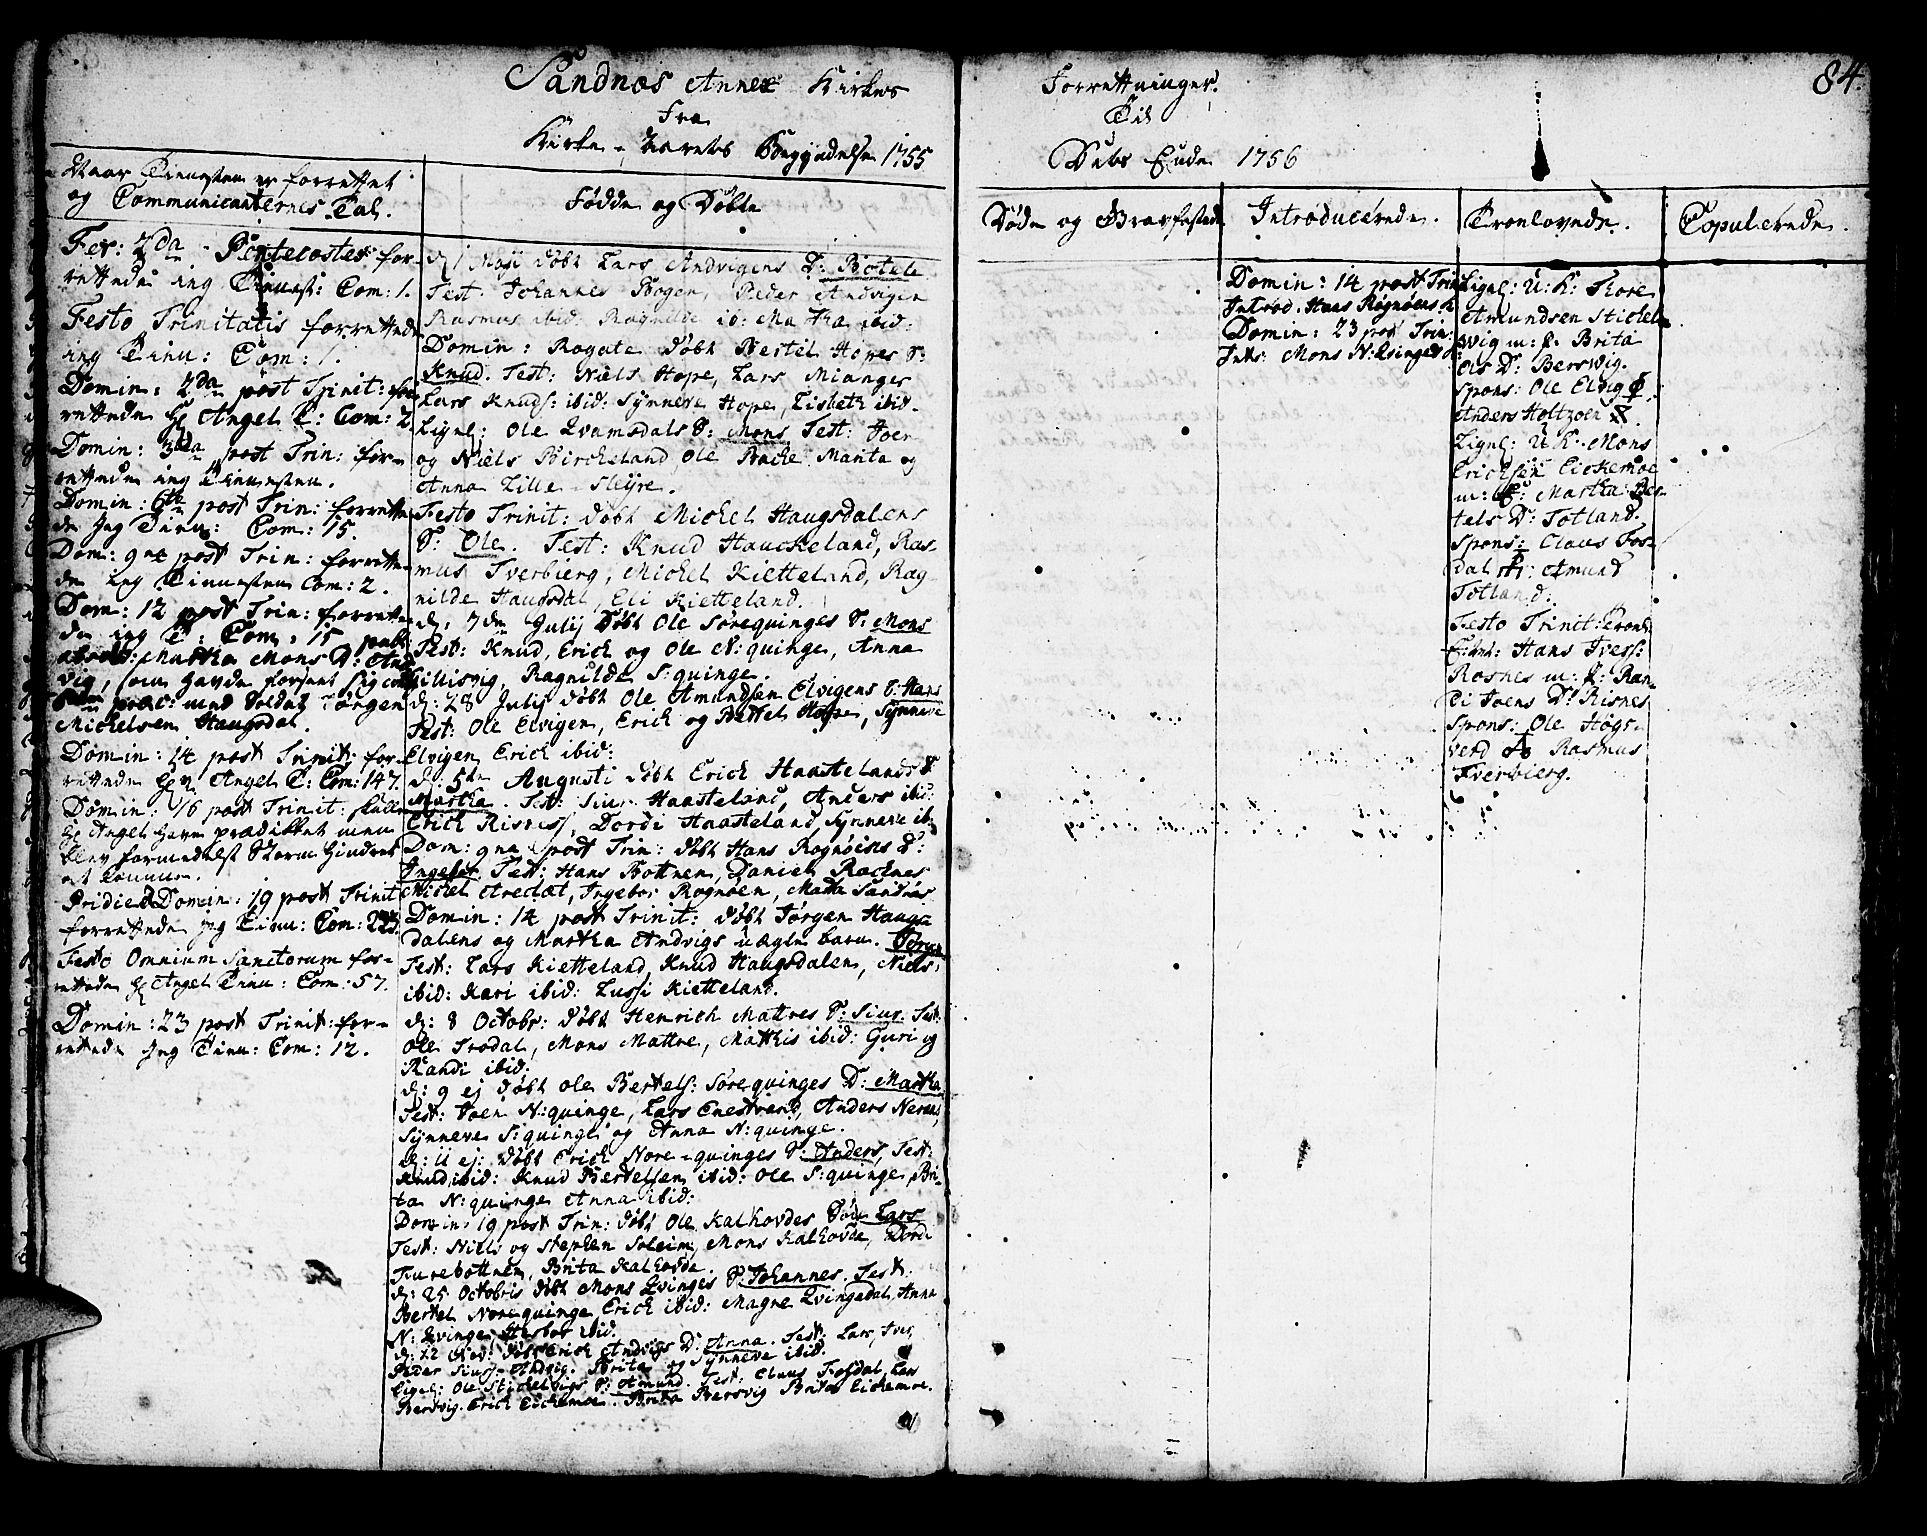 Sandnæs Annex Kirkes
fra
Kirke-Aarets Begyndelse 1755
Naar Tienesten er forrettet
og Communicanternes Tal.
Fer: 2da Pentecostes for-
rettede ieg Tienest: Com: 1.
Festo Trinitatis forrettede
ieg Tien: Com: 1.
Domin: 2da post Trinit: for-
rettede Hr Angel T: Com: 2.
Domin: 3tia post Trin: for-
rettede ieg Tienesten.
Domin: 6ta post Trin: forrette-
de Jeg Tien: Com: 15.
Dom: 9na post Trin: forrette-
de ieg Tienesten Com: 2.
Dom: 12 post Trin: forrette-
de ieg T: Com: 15 publ:
absol: Martha Mons D: And-
vig, som havde forseet sig
præc: med Soldat Jørgen
Michelsen Haugsdal.
Domin: 14 post Trinit: for-
rettede Hr Angel T: Com: 147.
Domin: 16 post Trinit: skulle
Hr Angel have prædikket men
blev formedelst Storm hindret
at komme.
Pridie Domin: 19 post Trinit
forrettede jeg Tien: Com: 223.
Festo Omnium Sanctorum for-
rettede Hr Angel Tien: Com: 57.
Domin: 23 post Trinit: for-
rettede Jeg Tien: Com: 12.
Fødde og Døbte
d: 1 Maji døbt Lars Andvigens D: Botele
Test. Johannes Bogen, Peder Andvigen
Rasmus ibid: Ragnilde ib: Martha ibid:
Domin: Rogate døbt Nestel Hopes S:
Knud. Test: Niels Hope, Lars Mianger
Lars Knuds: ibid: Synneve Hope, Lisbeth ibid.
Ligel: Ole Qvamsdals S: Mons Test: Joen
og Niels Birckeland, Ole Backe Marita og
Anna Lille-Sleyre.
Festo Trinit: døbt Michel Haugsdalens
S: Ole. Test: Knud Hauckeland, Ras-
mus Tverbierg, Michel Kietteland, Rag-
nilde Haugsdal, Eli Kietteland.
d: 7de Julij Døbt Ole Sørequinges S: Mons
Test: Knud, Erich og Ole N:quinge, Anna
Hillisvig, Ragnilde S:quinge.
d: 28 Julij døbt Ole Amundsen Elvigens S: Hans
Test: Ole Elvigen, Erick og Bettel Hope, Synneve
Elvigen Erick ibid:
d: 5te Augusti døbt Erick Haastelands D
Martha. Test: Siur Haasteland, Anders ibid:
Erich Risnes, Dordi Haasteland Synneve ib:
Dom: 9na post Trin: døbt Hans Rognøens D:
Ingebor Test: Hans Bottnen, Daniel Racknes
Michel Aredal, Ingebor Rognøen, Marta Sandnæs
Domin: 14 post Trinit: døbt Jørgen Haugs-
dalens og Martha Andvigs uægte barn. Jørgen
Test: Lars Kietteland, Knud Haugsdalen, Niels
ibid: Kari ibid: Lussi Kietteland.
d: 8 Octobr: døbt Henrich Mattres S: Siur. Test:
Ole Trodal, Mons Mattre, Matthis ibid: Guri og
Randi ibid:
d: 9 ej døbt Ole Bertels: Sørequinges D: Martha
Test: Joen N:quinge, Lars Enestrand, Anders
Synneve S:quinge og Anna N:quinge.
d: 11 ej: døbt Erich Nore-quinges S: Anders, Test:
Knud ibid: Knud Bertelsen ibid: Ole S:quinge, Bri-
ta N:quinge Anna ibid:
Domin: 19 post Trin: døbt Ole Kalhovdes Søn Lars
Test: Niels og Stephen Soleim, Mons Kalhovde, Dordi
Furebottnen, Brita Kalhovde.
d: 25 Octobris døbt Mons Qvinges S: Johannes. Test:
Bertel Norequinge Erich ibid: Magne Qvingedal, Anna
N: Qvinge, Hesbor ibid.
d: 22 Nov: døbt Erich Andvigs D: Anna. Test: Lars, Iver,
Peder Siurs: Andvig. Brita og Synneve ibid.
Ligel: Ole Stickelvigs S: Amund. Test: Claus Fosdal, Lars
Bersvig. Erich Eickemoe. Brita Bersvig Brita Eickemoe.
Forretninger.
Til
Dets Ende 1756
84.
Døde og Gravfæstede
Introducerede.
Domin: 14 post Trin
Introd. Hans Rognøens K
Domin: 23 post Trin:
Intr: Mons N:Qvinges K:
Troelovede.
Ligel: U: K: Thore
Amundsen Stickel-
vig m: P: Brita
Ols D: Bersvig.
Spons: Ole Elvig
Anders Holtzoen
Ligel: U: K: Mons
Erichsen Eickemoe
m: P: Martha Ber-
tels D: Totland.
Spons: Claus Fos-
dal Amund
Totland.
Festo Trinit: troel:
Hans Ivers:
Rosnes m: P: Ran-
di Joens D: Risnes
Spons: Ole Høgs-
verd Rasmus
Tverbierg.
Copulerede.